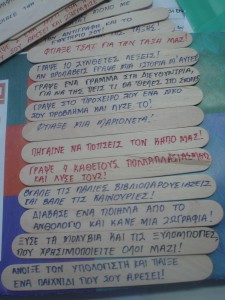 ΦΤΙΑΞΕ ΤΣΑΤ ΓΙΑ ΤΗΝ ΤΑΞΗ ΜΑΣ!
ΓΡΑΨΕ 10 ΣΥΝΘΕΤΕΣ ΛΕΞΕΙΣ!
ΑΝ ΠΡΟΛΑΒΕΙΣ ΓΡΑΨΕ ΜΙΑ ΙΣΤΟΡΙΑ Μ' ΑΥΤΕΣ
ΓΡΑΨΕ ΕΝΑ ΓΡΑΜΜΑ ΣΤΗ ΔΙΕΥΘΥΝΤΡΙΑ,
ΓΙΑ ΝΑ ΤΗΣ ΠΕΙΣ ΤΙ ΘΑ ΉΘΕΛΕΣ ΣΤΟ ΣΧΟΛΕΙΟ
ΓΡΑΨΕ ΣΤΟ ΤΕΤΡΑΔΙΟ ΣΟΥ ΕΝΑ ΔΙΚΟ
ΣΟΥ ΠΡΟΒΛΗΜΑ ΚΑΙ ΛΥΣΕ ΤΟ!
ΦΤΙΑΞΕ ΜΙΑ
ΠΗΓΑΙΝΕ ΝΑ ΠΟΤΙΣΕΙΣ ΤΟΝ ΚΗΠΟ ΜΑΣ!
ΓΡΑΨΕ 4 ΚΑΘΕΤΟΥΣ ΠΟΛΛΑΠΛΑΣΙΑΣΜΟΥΣ
ΚΑΙ ΛΥΣΕ ΤΟΥΣ!
ΒΓΑΛΕ ΤΙΣ ΠΑΛΙΕΣ ΒΙΒΛΙΟΠΑΡΟΥΣΙΑΣΕΙΣ
ΚΑΙ ΒΑΛΕ ΤΙΣ ΚΑΙΝΟΥΡΓΙΕΣ!
ΔΙΑΒΑΣΕ ΕΝΑ ΠΟΙΗΜΑ ΑΠΟ ΤΟ
ΑΝΘΟΛΟΓΙΟ ΚΑΙ ΚΑΝΕ ΜΙΑ ΖΩΓΡΑΦΙΑ!
ΞΥΣΕ ΤΑ ΜΟΛΥΒΙΑ ΚΑΙ ΤΙΣ ΞΥΛΟΜΠΟΓΙΕΣ
ΠΟΥ ΧΡΗΣΙΜΟΠΟΙΕΙΤΕ ΟΛΟΙ ΜΑΖΙ!
ΑΝΟΙΞΕ ΤΟΝ ΥΠΟΛΟΓΙΣΤΗ ΚΑΙ ΠΑΙΞΕ
ΕΝΑ ΠΑΙΧΝΙΔΙ ΠΟΥ ΣΟΥ ΑΡΕΣΕΙ!